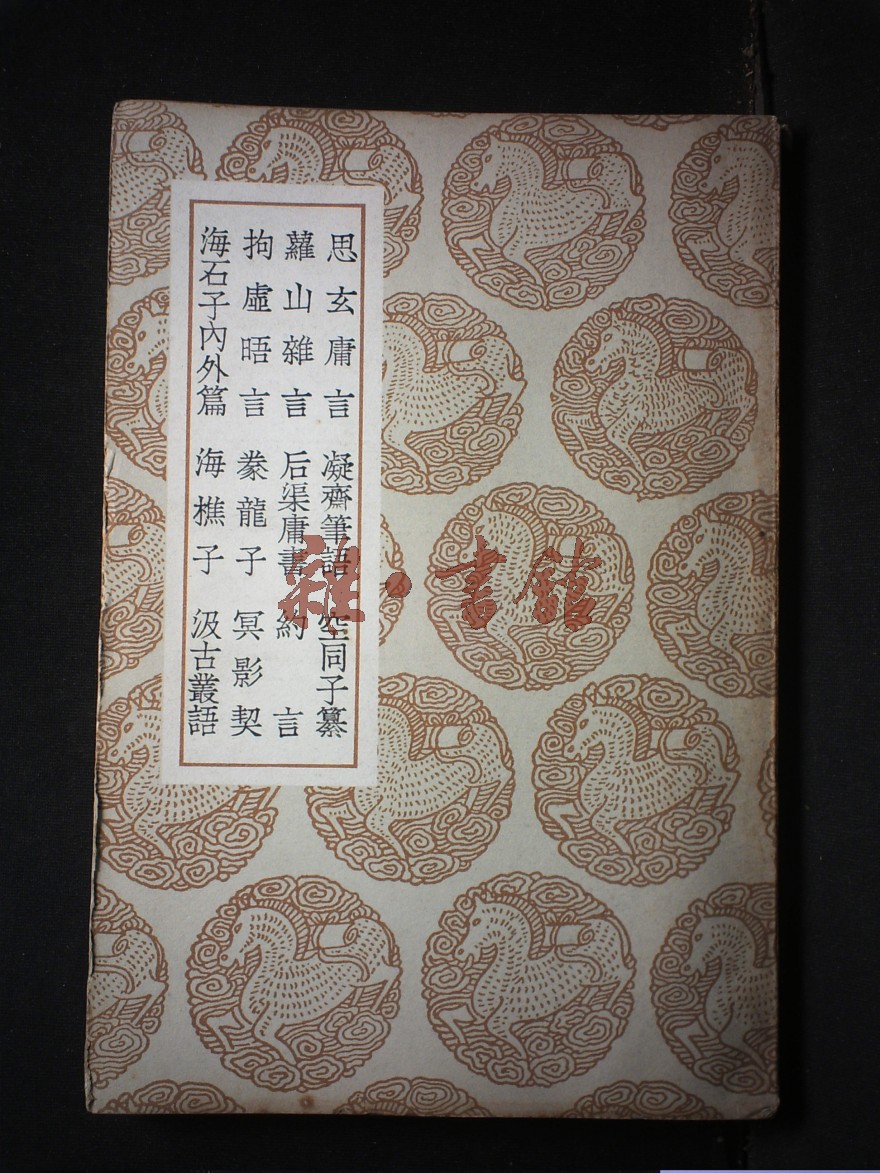 思玄庸言 凝齋筆語 空同子纂
蘿山雜言 后渠庸書 約言
拘虛晤言 豢龍子 冥影契
海石子內外篇 海樵子 汲古叢語
雜·書館